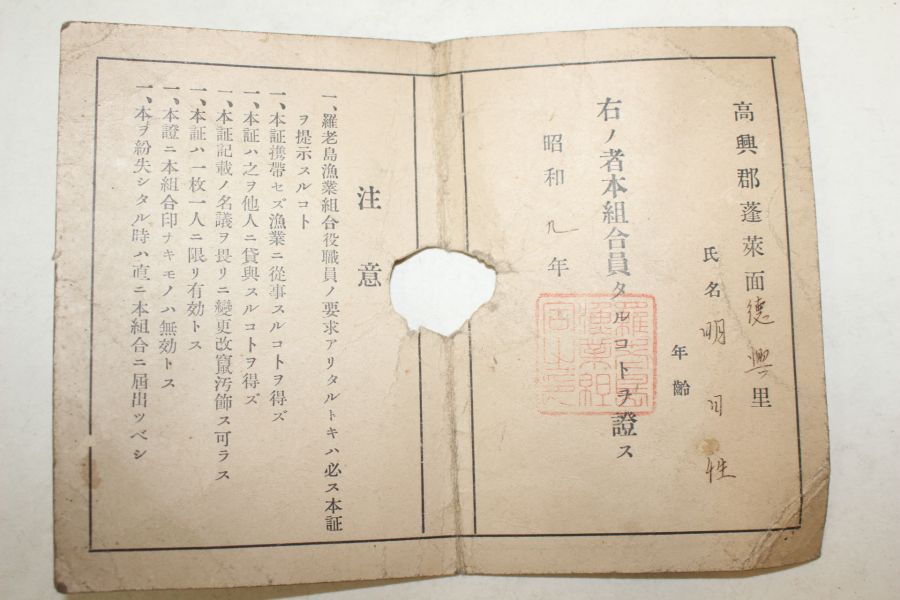 高興郡蓬萊面德興里
氏名 明 性
年齡
右ノ者本組合員タルコトヲ證ス
昭和九年
注意
一、羅老島漁業組合役職員ノ要求アリタルトキハ必ス本証
ヲ提示スルコト
一、本証携帶セズ漁業ニ從事スルコトヲ得ズ
一、本証ハ之ヲ他人ニ貸與スルコトヲ得ズ
一、本証記載ノ名議ヲ畏リニ變更改竄汚飾ス可ラス
一、本証ハ一枚一人ニ限リ有効トス
一、本證ニ本組合印ナキモノハ無効トス
一、本ヲ紛失シタル時ハ直ニ本組合ニ屆出ツベシ